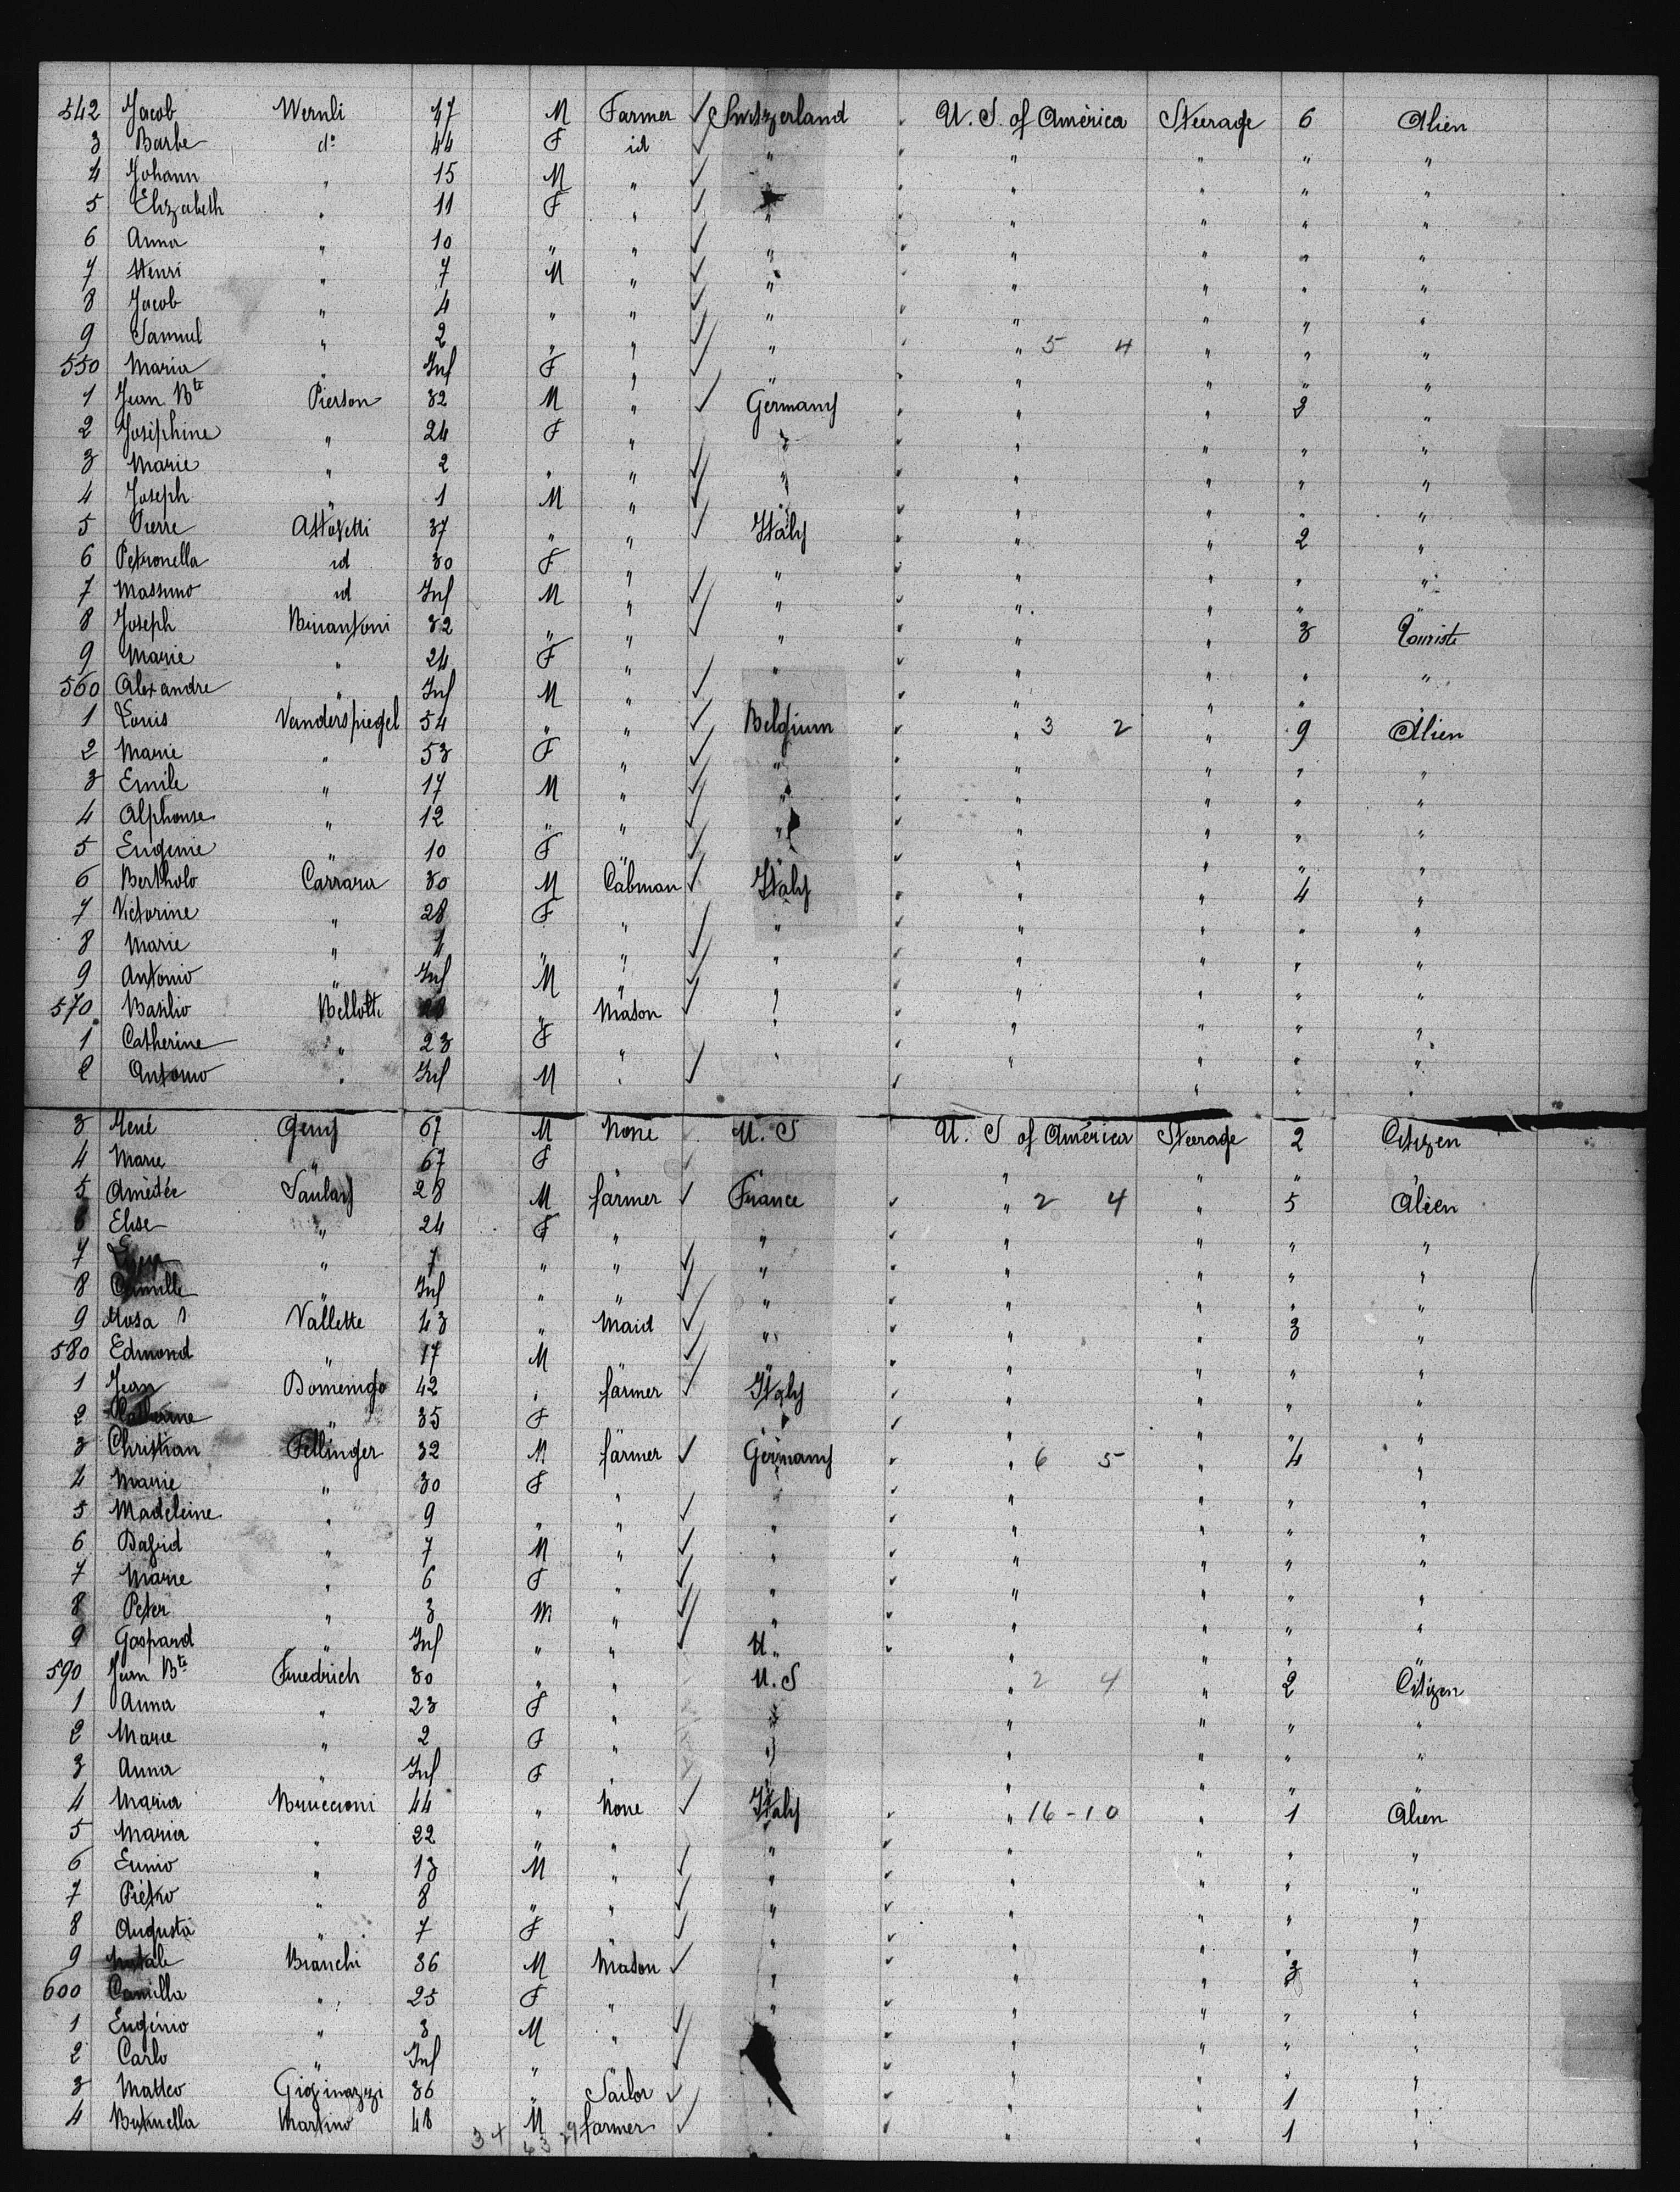 542 Jacob Wernli 47 M Farmer ✓ Switzerland U. S. of América Steerage 6 Alien
3 Barbe do 44 F id ✓ " " " " "
4 Johann " 15 M " ✓ " " " " "
5 Elizabeth " 11 F " ✓ " " " " "
6 Anna " 10 " " ✓ " " " " "
7 Henri " 7 M " ✓ " " " " "
8 Jacob " 4 " " ✓ " " " " "
9 Samuel " 2 " " ✓ " " 5 4 " " "
550 Maria " Inf F " ✓ " " " " "
1 Jean Bte Pierson 32 M " ✓ Germany " " 3 "
2 Joséphine " 24 F " " " " " "
3 Marie " 2 " " ✓ " " " " "
4 Joseph " 1 M " ✓ " " " " "
5 Pierre 37 " " ✓ Italy " " 2 "
6 Petronella id 30 F " " " " " "
7 Massimo id Inf M " ✓ " " " " "
8 Joseph 32 " " ✓ " " " 3 Touriste
9 Marie " 24 F " " " " " "
560 Alexandre " Inf M " ✓ " " " "
1 Louis Vanderspiegel 54 " " ✓ Belgium " 3 2 " 9 Alien
2 Marie " 53 F " ✓ " " " " "
3 Emile " 17 M " ✓ " " " " "
4 Alphonse " 12 " " ✓ " " " " "
5 Eugenie " 10 F " ✓ " " " " "
6 Bertholo Carrara 30 M Cabman ✓ Italy " " 4 "
7 Victorine " 28 F " " " " " "
8 Marie " " " ✓ " " " " "
9 Antonio " Inf M " ✓ " " " " "
570 Basilio Bellotti " Mason ✓ " " " " "
1 Catherine " 23 F " " " " " "
2 Antonio " Inf M " ✓ " " " " "
3 René Geny 67 M None U. S U. S of América Steerage 2 Citizen
4 Marie " 67 F " " " "
5 Amédée Saulary 28 M farmer ✓ France " 2 4 " 5 Alien
6 Elise " 24 F " " " " " "
7 " 7 " " ✓ " " " " "
8 Camille " Inf " " ✓ " " " " "
9 Rosa Vallette 43 " Maid ✓ " " " 3 "
580 Edmond " 17 M ✓ " " " " "
1 Jean Domenigo 42 " farmer ✓ Italy " " " "
2 Catherine " 35 F " " " "
3 Christian Fellinger 32 M farmer ✓ Germany " 6 5 " 4 "
4 Marie " 30 F " " " " " "
5 Madeleine " 9 " " ✓ " " " " "
6 David " 7 M " ✓ " " " " "
7 Marie " 6 F " ✓ " " " " "
8 Peter " 3 M " ✓ " " " " "
9 Gaspard " Inf " " ✓ U. " " " "
590 Jean Bte Friedrich 30 " " U. S " 2 4 " 2 Citizen
1 Anna " 23 F " " " " " "
2 Marie " 2 F " " " " " "
3 Anna " Inf F " " " " " "
4 Maria Bruccioni 44 " None ✓ Italy " 16-10 " 1 Alien
5 Maria " 22 " " " " " " "
6 Ennio " 13 M " ✓ " " " " "
7 Piétro " 8 " " ✓ " " " " "
8 Augusta " 7 F ✓ " " " " "
9 Natale Bianchi 36 M Mason ✓ " " " 3 "
600 Camilla " 25 F " " " " " "
1 Eugénio " 3 M " ✓ " " " " "
2 Carlo " Inf " ✓ " " " " "
3 Matteo Giozinazzi 36 " Sailor ✓ " " 1 "
4 Martino 48 M farmer ✓ " " " 1 "
34 63 29